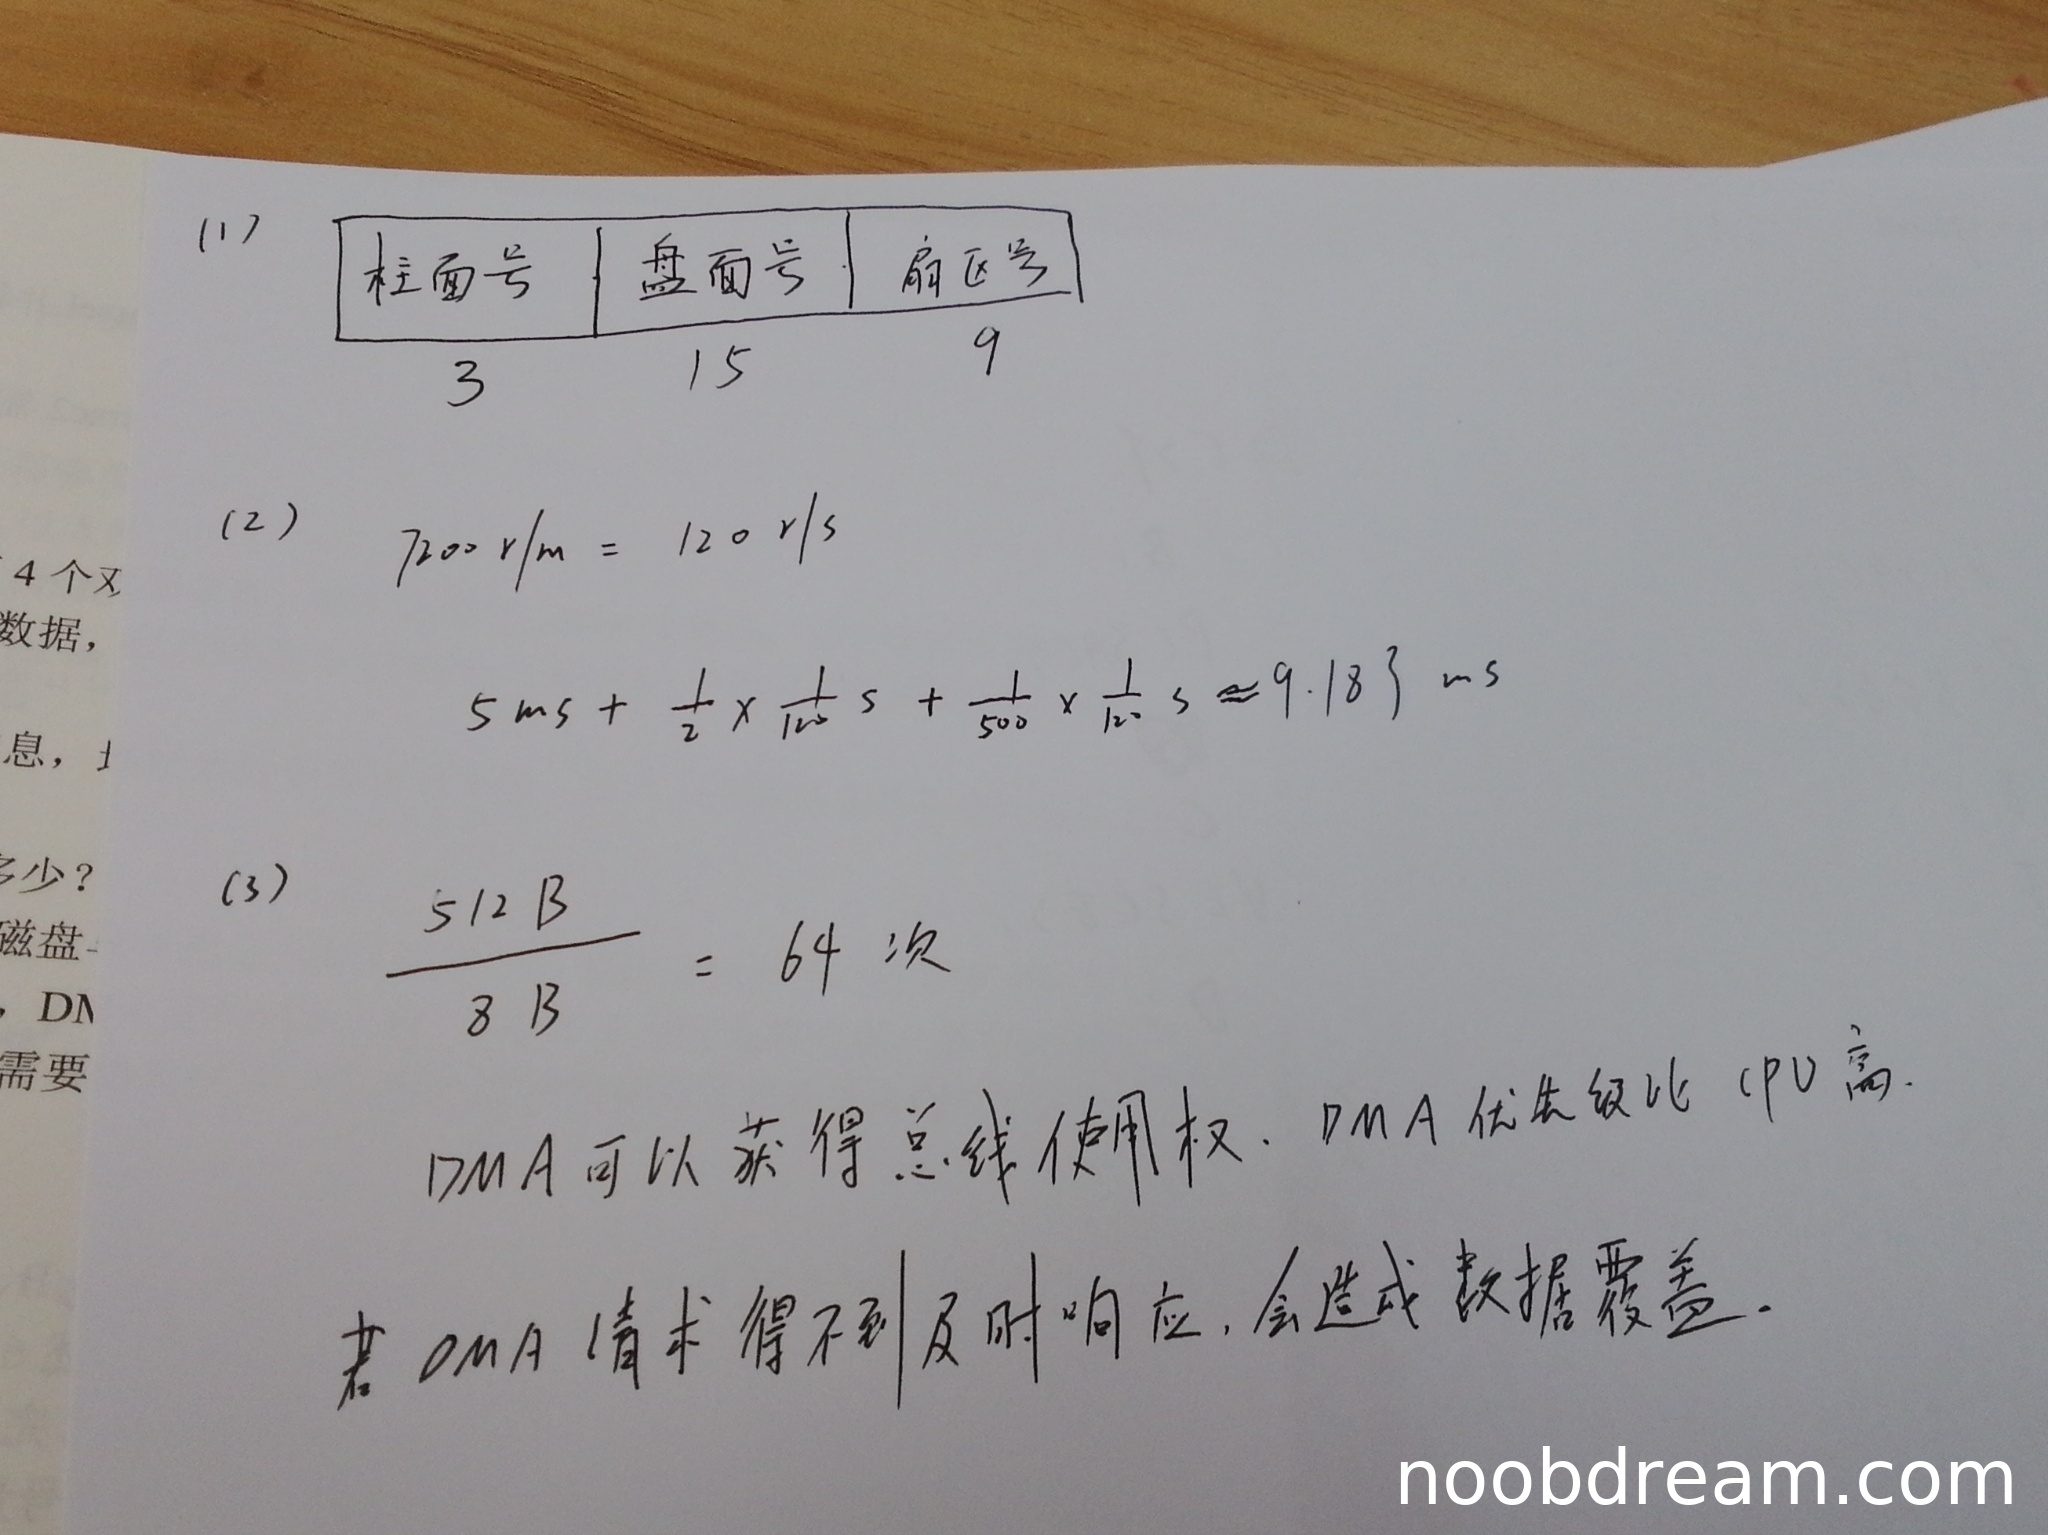 (1) 柱面号 盘面号 扇区号
3 15 9
(2) 7200 r/m = 120 r/s
4个
数据,
5ms + 1/2 × 1/120 s + 1/500 × 1/120 s ≈ 9.183 ms
息,
多少?
(3) 512 B / 8 B = 64 次
磁盘
, DM
需要
DMA可以获得总线使用权. DMA优先级比CPU高.
若DMA请求得不到及时响应, 会造成数据覆盖.
noobdream.com